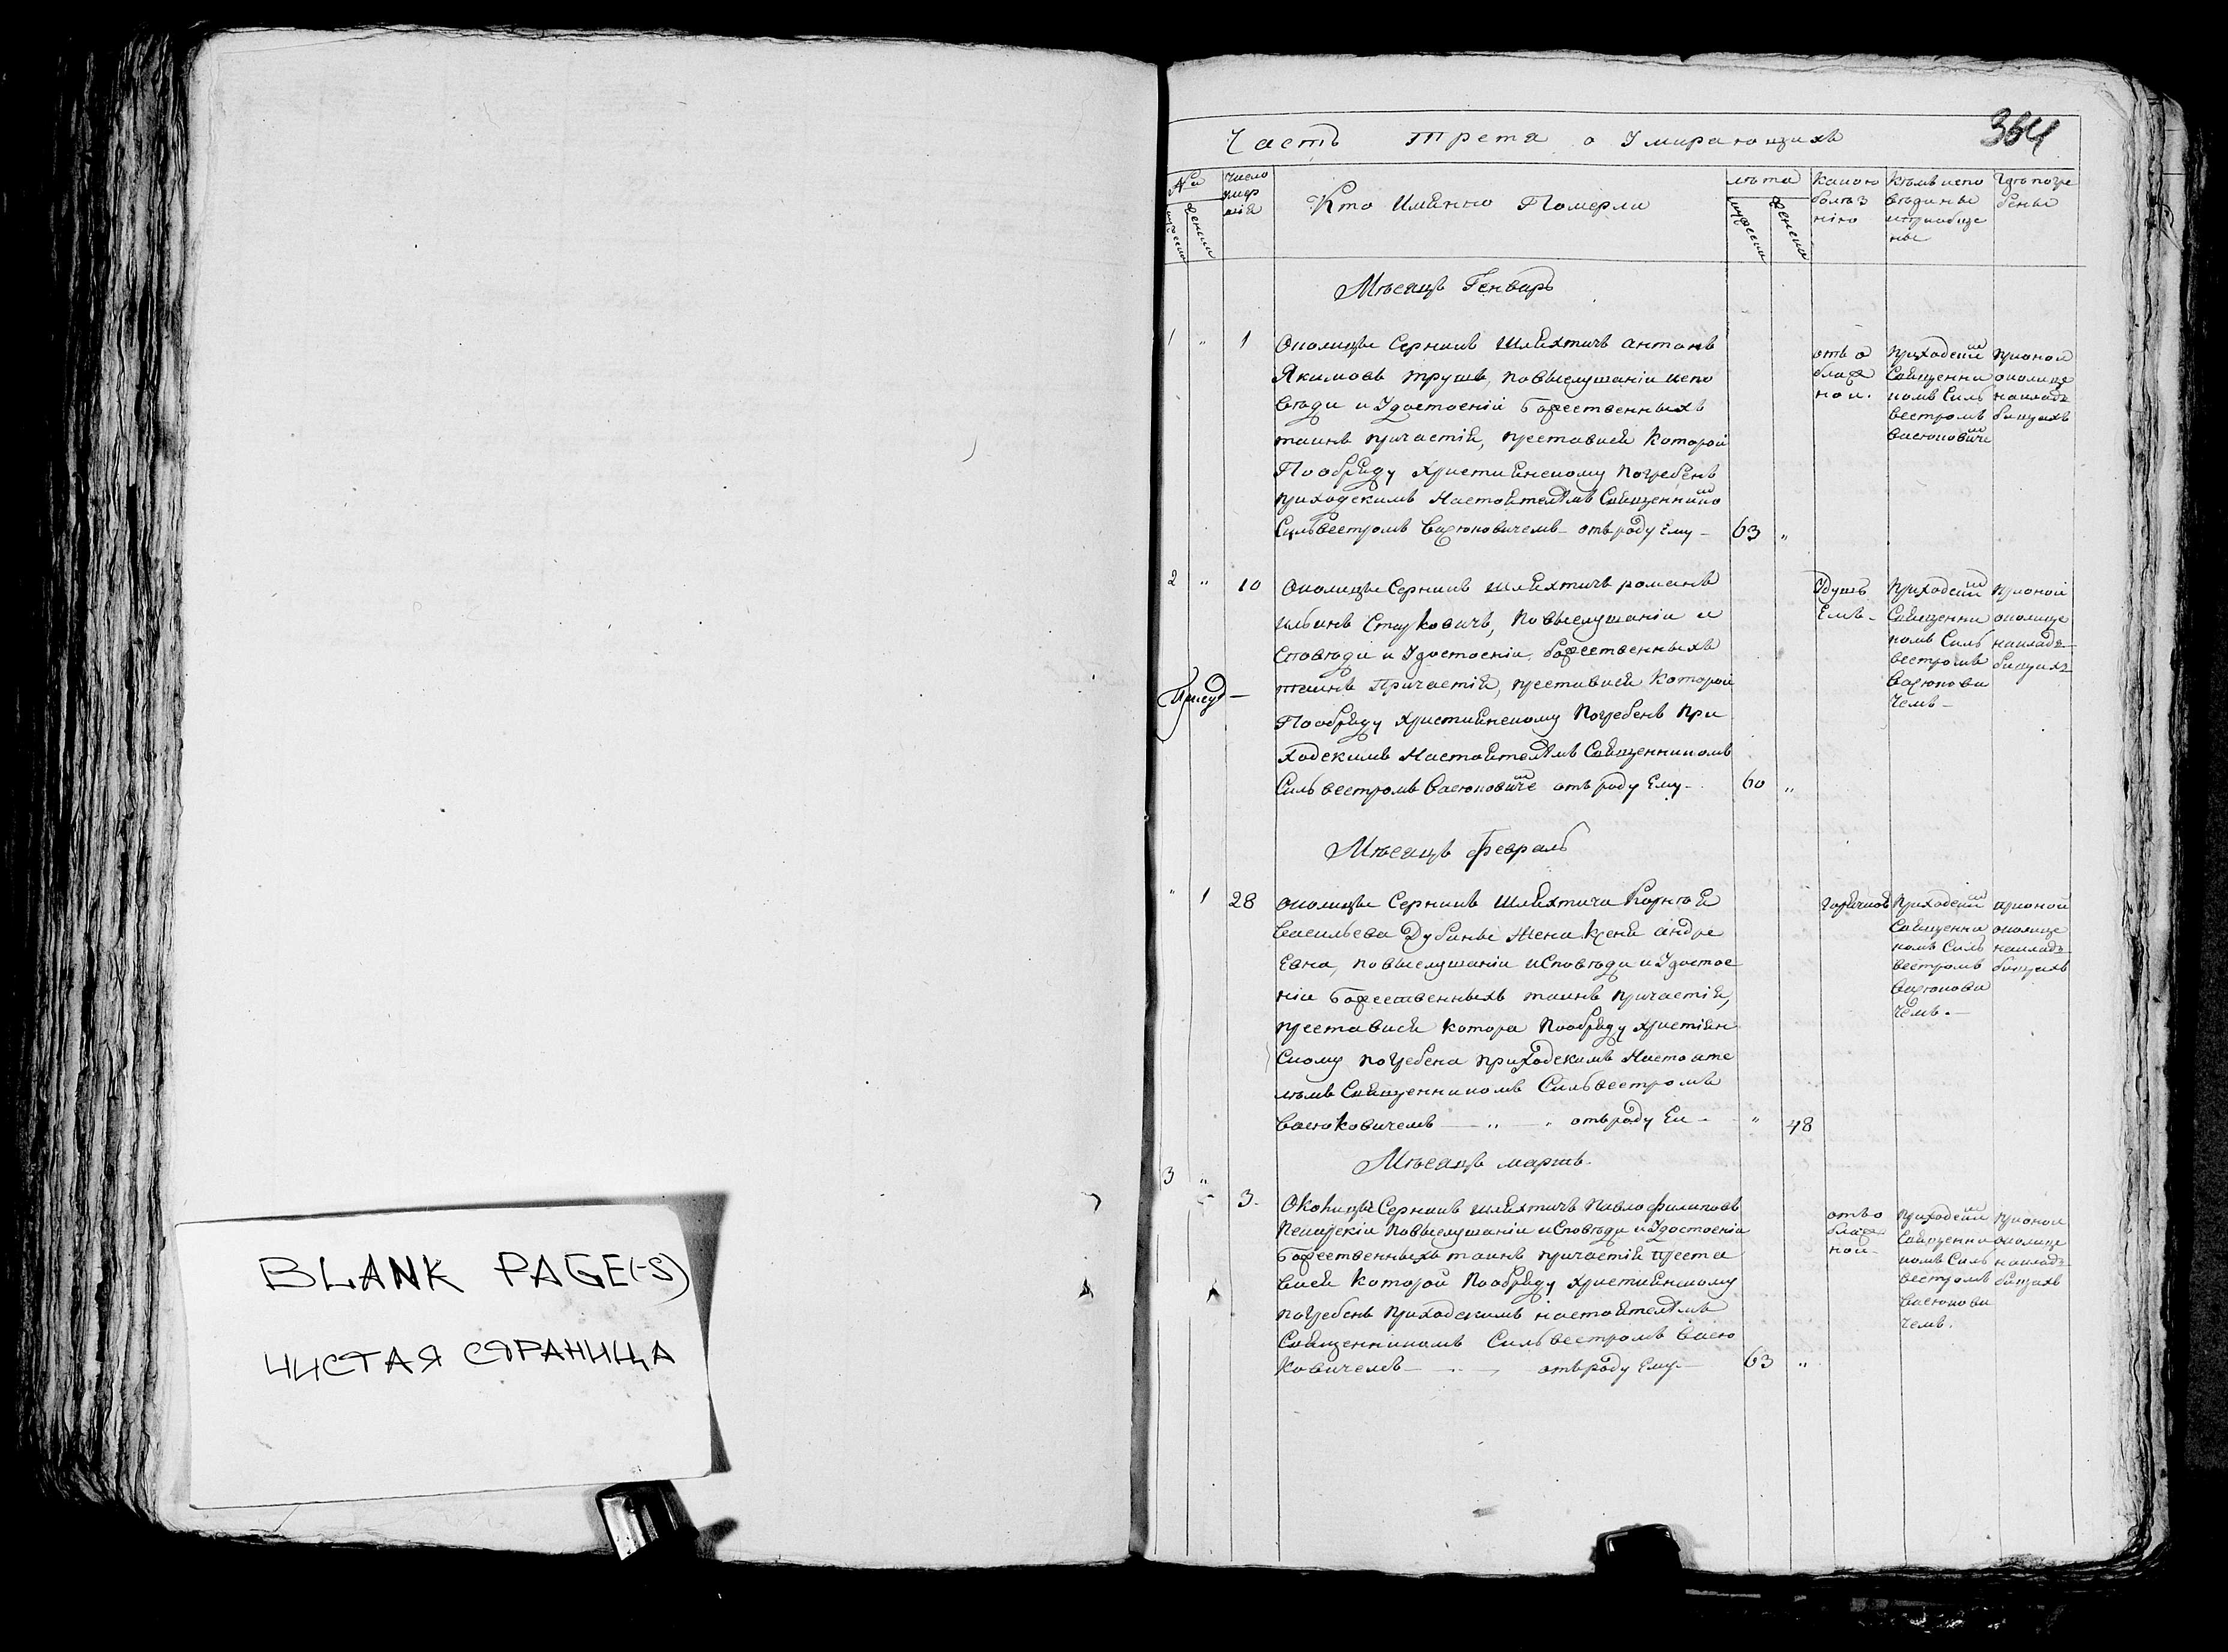 BLANK PAGE(-S)
ЧИСТАЯ СТРАНИЦА
364
Часть трета о Умирающихъ
№а
число
умер
шія
Кто Имянно Померли
лѣта
какою
болѣз
нію
Кѣмъ испо
вѣданы
и приобще
ны
Гдѣ погре
бены
мужеска
женска
мужеска
женска
Мѣсяцъ Генварь
1 " 1
Околицы Серникъ Шляхтичъ антонъ
Якимовъ трушъ, повыслушаніи испо
вѣди и Удостоеніи Божественныхъ
таинъ причастія, преставися Которой
Пообряду християнскому погребенъ
приходскимъ Настоятелѣмъ Священнико
Сильвестромъ Васюковичемъ отъ роду Ему 63 "
отъ о
блаж
ной.
приходски
Священни
комъ Силь
вестромъ
Васюковиче
прионой
околице
накладъ
бищахъ
2 " 10
Околицы Серникъ Шляхтичъ романъ
ильинъ Стаховичъ, Повыслушаніи и
Сповѣди и Удостоеніи божественныхъ
таинъ Причастія, преставися Которои
Пообряду Християнскому Погребенъ При
ходскимъ Настоятелѣмъ Священникомъ
Сильвестромъ Васюковиче отъ роду Ему 60 "
Удушъ
Емъ
приходски
Священни
комъ Силь
вестромъ
Васюкови
чемъ
прионой
околице
накладъ
бищахъ
Мѣсяцъ февраль
" 1 28
околицы Серникъ Шляхтича Корнѣя
Васильева Дубины Жена Ксеня андре
Евна, повыслушаніи исповѣди и Удостое
ніи Божественныхъ таинъ причастія,
преставися котора Пообряду христіян
Скому погребена приходскимъ Настояте
лѣмъ Священникомъ Сильвестромъ
Васюковичемъ отъ роду Еи " 48
Горячкой
приходски
Священни
комъ Силь
вестромъ
Васюкови
чемъ.
прионой
околице
накладъ
бищахъ
Мѣсяцъ мартъ.
3 " 3
Околицы Серникъ шляхтичъ Павло филиповъ
повыслушаніи исповѣди и Удостоеніи
Божественныхъ таинъ причастія преста
вися Которой Пообряду християнскому
погребенъ приходскимъ настоятелѣмъ
Священникомъ Сильвестромъ Васю
Ковичемъ отъ роду Ему 63 "
отъ о
блаж
ной
приходски
Священни
комъ Силь
вестромъ
Васюкови
чемъ.
прионой
околице
накладъ
бищахъ